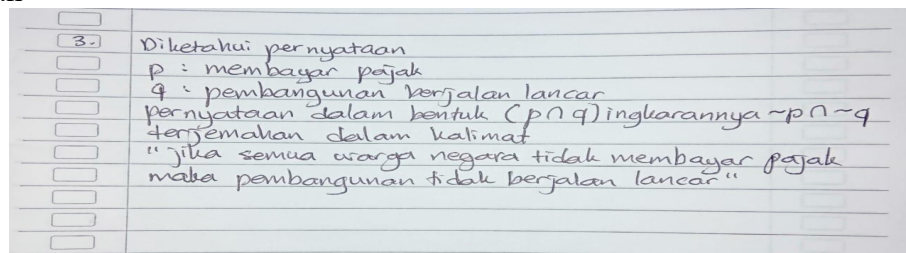 3. Diketahui pernyataan
p : membayar pajak
q : pembangunan berjalan lancar
pernyataan dalam bentuk (p ∩ q) ingkarannya ~p ∩ ~q
terjemahan dalam kalimat
"jika semua warga negara tidak membayar pajak
maka pembangunan tidak berjalan lancar"